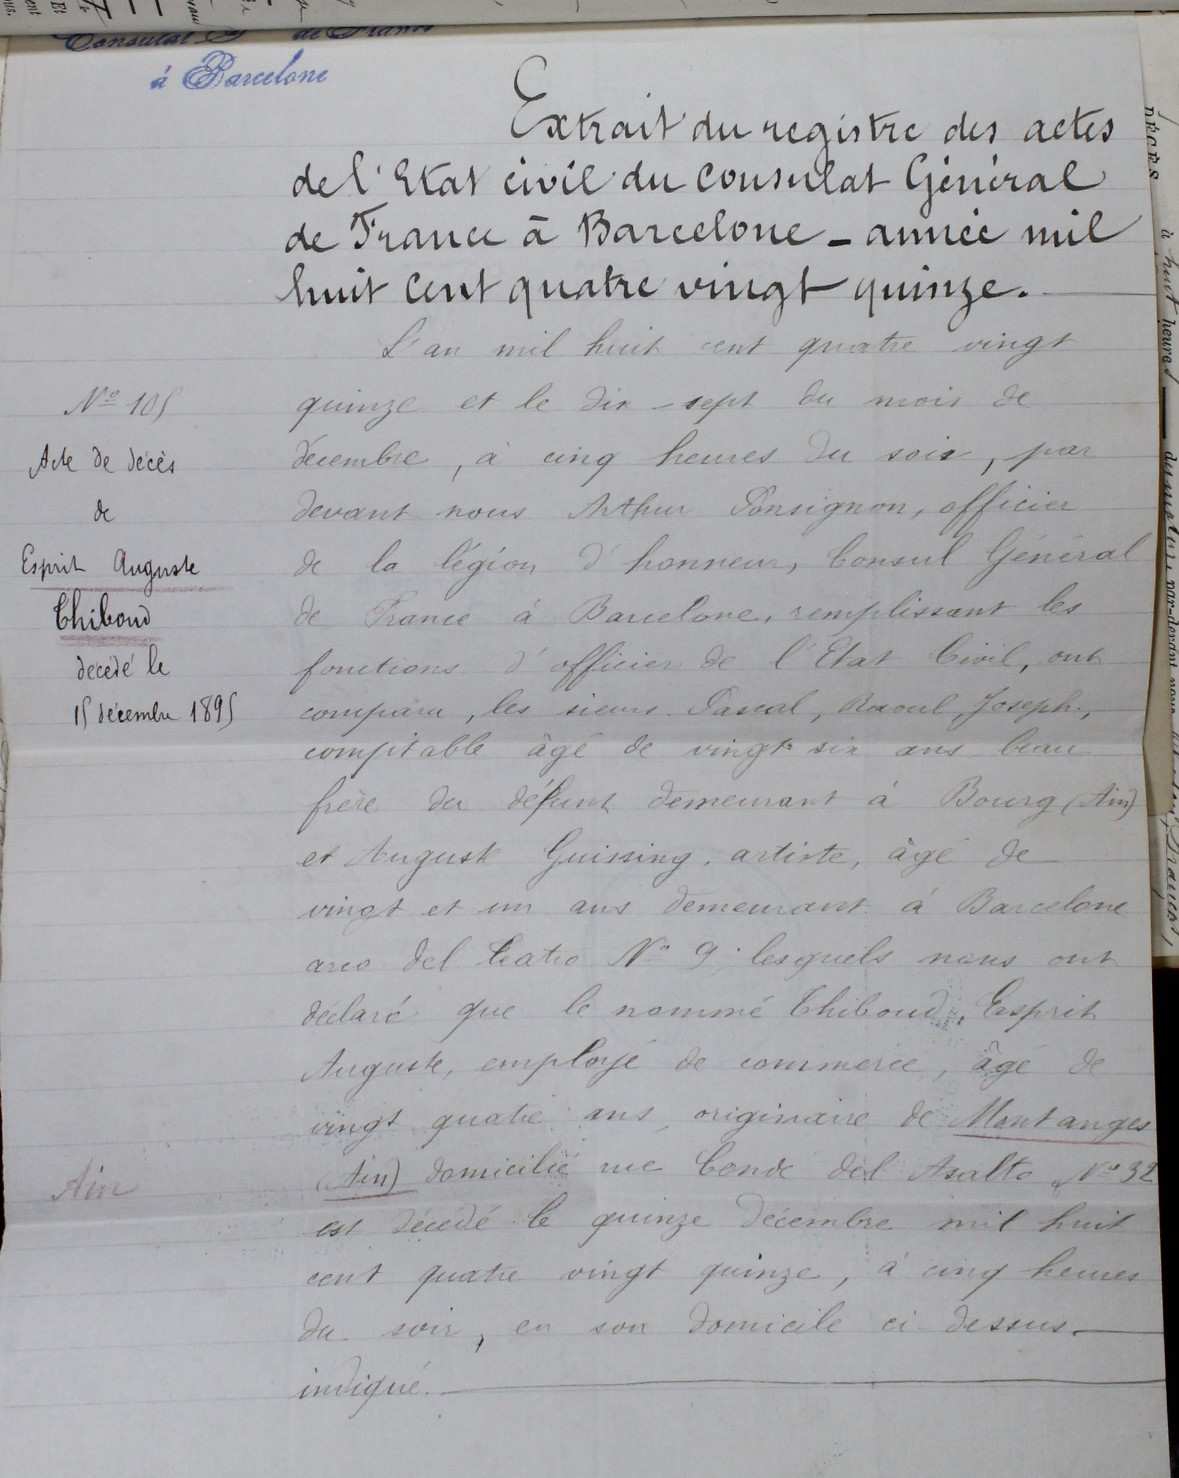 Consulat Gal de France
à Barcelone
Extrait du registre des actes
de l'Etat civil du Consulat Général
de France à Barcelone - année mil
huit cent quatre vingt quinze.
L'an mil huit cent quatre vingt
quinze et le dix-sept du mois de
décembre, à cinq heures du soir, par
devant nous Arthur Ponsignon, officier
de la légion d'honneur, Consul Général
de France à Barcelone, remplissant les
fonctions d'officier de l'Etat Civil, ont
comparu, les sieurs Pascal, Raoul, Joseph,
comptable âgé de vingt six ans beau
frère du défunt demeurant à Bourg (Ain)
et Auguste Guissing, artiste, âgé de
vingt et un ans demeurant à Barcelone
arco del teatro No 9 lesquels nous ont
déclaré que le nommé Thiboud, Esprit
Auguste, employé de commerce, âgé de
vingt quatre ans, originaire de Montanges
(Ain) domicilié rue Conde del Asalto No 32
est décédé le quinze décembre mil huit
cent quatre vingt quinze, à cinq heures
du soir, en son domicile ci dessus
indiqué.
No 105
Acte de décès
de
Esprit Auguste
Thiboud
décédé le
15 décembre 1895
Ain
DÉCÈS
à huit heures
du matin, par-devant nous